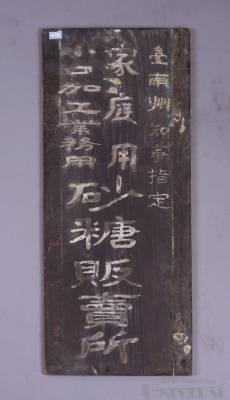 臺南州知事指定
家庭用砂糖販賣所
加工業務用